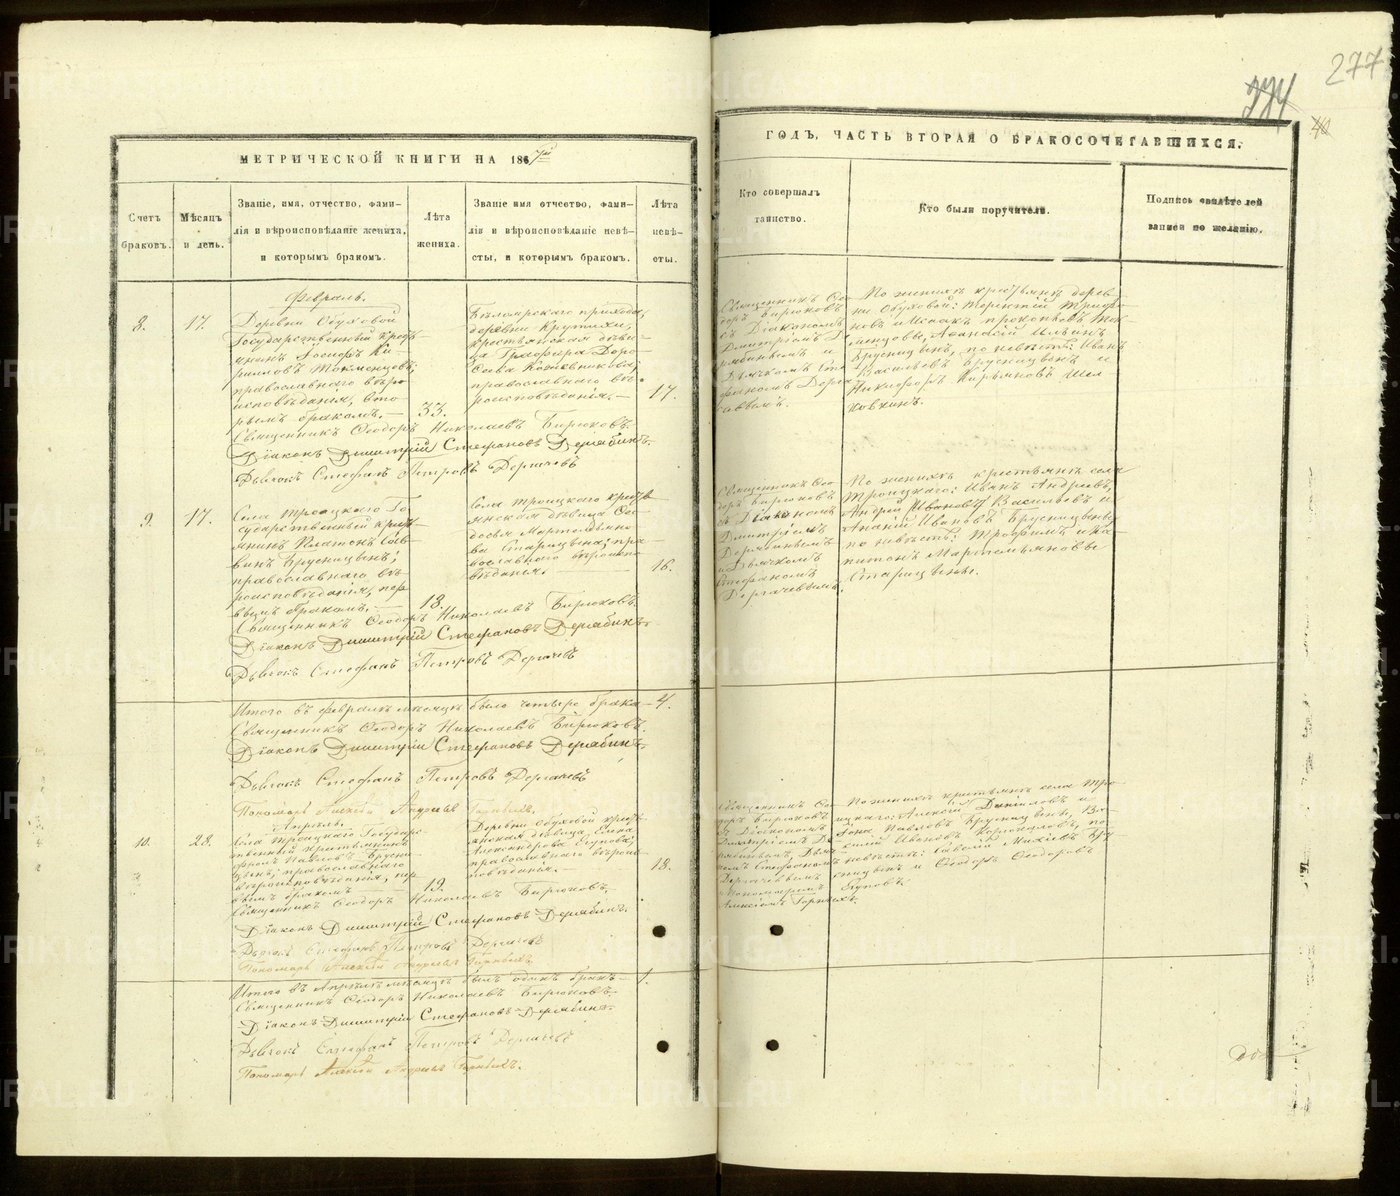 277
274
40
МЕТРИЧЕСКОЙ КНИГИ НА 1867й
ГОДЪ, ЧАСТЬ ВТОРАЯ О БРАКОСОЧЕТАВШИХСЯ.
Счетъ
браковъ.
Мѣсяцъ
и день.
Званіе, имя, отчество, фами-
лія и вѣроисповѣданіе жениха,
и которымъ бракомъ.
Лѣта
жениха.
Званіе имя отчество, фами-
лія и вѣроисповѣданіе невѣ-
сты, и которымъ бракомъ.
Лѣта
невѣ-
сты.
Кто совершалъ
таинство.
Кто были поручители.
Подпись свидѣтелей
записи по желанію.
Февраль.
8.
17.
Деревни Обуховой
Государственный крест-
янинъ Іосифъ Ки-
риловъ Токменцовъ,
православнаго вѣро-
исповѣданія, вто-
рымъ бракомъ.
33.
деревни Крутихи,
крестьянская дѣви-
ца Глафира Доро-
феева Кожевникова,
православнаго вѣ-
роисповѣданія.
17.
Священникъ Ѳео-
доръ Бирюковъ
съ Діакономъ
Димитріемъ Де-
рябинымъ и
Дьячкомъ Сте-
фаномъ Дерга-
чевымъ.
По женихѣ крестьяне дерев-
ни Обуховой: Терентій Трифо-
новъ и Исаакъ Прокопьевъ Ток-
менцовы, Аѳанасій Ильинъ
Брусницынъ, по невѣстѣ: Иванъ
Васильевъ Брусницынъ и
Никифоръ Кирьяновъ Шел-
ковкинъ.
Священникъ Ѳеодоръ Николаевъ Бирюковъ.
Діаконъ Димитрій Стефановъ Дерябинъ.
Дьячокъ Стефанъ Петровъ Дергачевъ
9.
17.
Села Троицкаго Го-
сударственный крест-
янинъ Платонъ Сав-
винъ Брусницынъ,
православнаго вѣ-
роисповѣданія, пер-
вымъ бракомъ.
18.
Села Троицкаго крест-
янская дѣвица Ѳео-
досья Мартемьяно-
ва Старицына, пра-
вославнаго вѣроиспо-
вѣданія.
16.
Священникъ Ѳео-
доръ Бирюковъ
съ Діакономъ
Димитріемъ
Дерябинымъ
и Дьячкомъ
Стефаномъ
Дергачевымъ.
По женихѣ крестьяне села
Троицкаго: Иванъ Андреевъ,
Андрей Ивановъ, Васильевъ и
Ананій Ивановъ Брусницыны,
по невѣстѣ: Трофимъ и Ка-
питонъ Мартемьяновы
Старицыны.
Священникъ Ѳеодоръ Николаевъ Бирюковъ.
Діаконъ Димитрій Стефановъ Дерябинъ.
Дьячокъ Стефанъ Петровъ Дергачевъ
Итого въ Февралѣ мѣсяцѣ было четыре брака 4.
Священникъ Ѳеодоръ Николаевъ Бирюковъ.
Діаконъ Димитрій Стефановъ Дерябинъ.
Дьячокъ Стефанъ Петровъ Дергачевъ
Пономарь Алексѣй Андреевъ Горныхъ.
Апрѣль.
10.
28.
Села Троицкаго Государс-
твенный крестьянинъ
Павловъ Брусни-
цынъ, православнаго
вѣроисповѣданія, пер-
вымъ бракомъ
19.
Деревни Обуховой крест-
янская дѣвица Елена
Александрова Ѣгупова,
православнаго вѣроис-
повѣданія.
18.
Священникъ Ѳео-
доръ Бирюковъ
съ Діакономъ
Димитріемъ Де-
рябинымъ, Дьяч-
комъ Стефаномъ
Дергачевымъ
и Пономаремъ
Алексіемъ Горныхъ.
По женихѣ крестьяне села Тро-
ицкаго: Алексѣй Даниловъ и
Павловъ Брусницыны, Ва-
силій Ивановъ по
невѣстѣ: Брус-
ницынъ и Ѳеодоръ Ѳеодоровъ
Священникъ Ѳеодоръ Николаевъ Бирюковъ.
Діаконъ Димитрій Стефановъ Дерябинъ.
Дьячокъ Стефанъ Петровъ Дергачевъ
Пономарь Алексѣй Андреевъ Горныхъ.
Итого въ Апрѣлѣ мѣсяцѣ былъ одинъ бракъ 1.
Священникъ Ѳеодоръ Николаевъ Бирюковъ.
Діаконъ Димитрій Стефановъ Дерябинъ.
Дьячокъ Стефанъ Петровъ Дергачевъ
Пономарь Алексѣй Андреевъ Горныхъ.